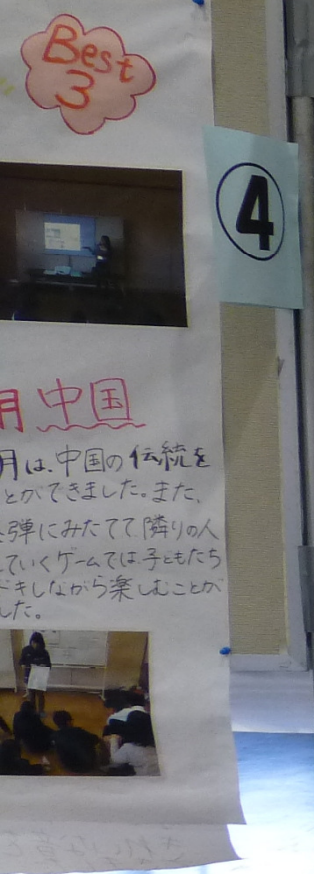 Best
3
4
月 中国
月は、中国の伝統を
とができました。また、
弾にみたてて隣りの人
していくゲームでは子どもたち
ドキしながら楽しむことが
した。